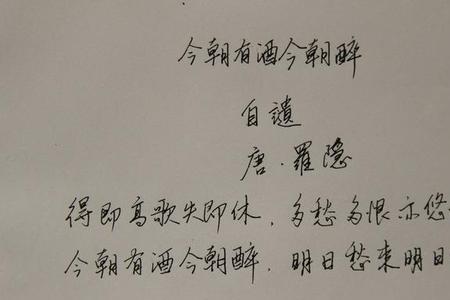 今朝有酒今朝醉
自遣
唐·羅隐
得即高歌失即休，多愁多恨亦悠
今朝有酒今朝醉，明日愁来明日